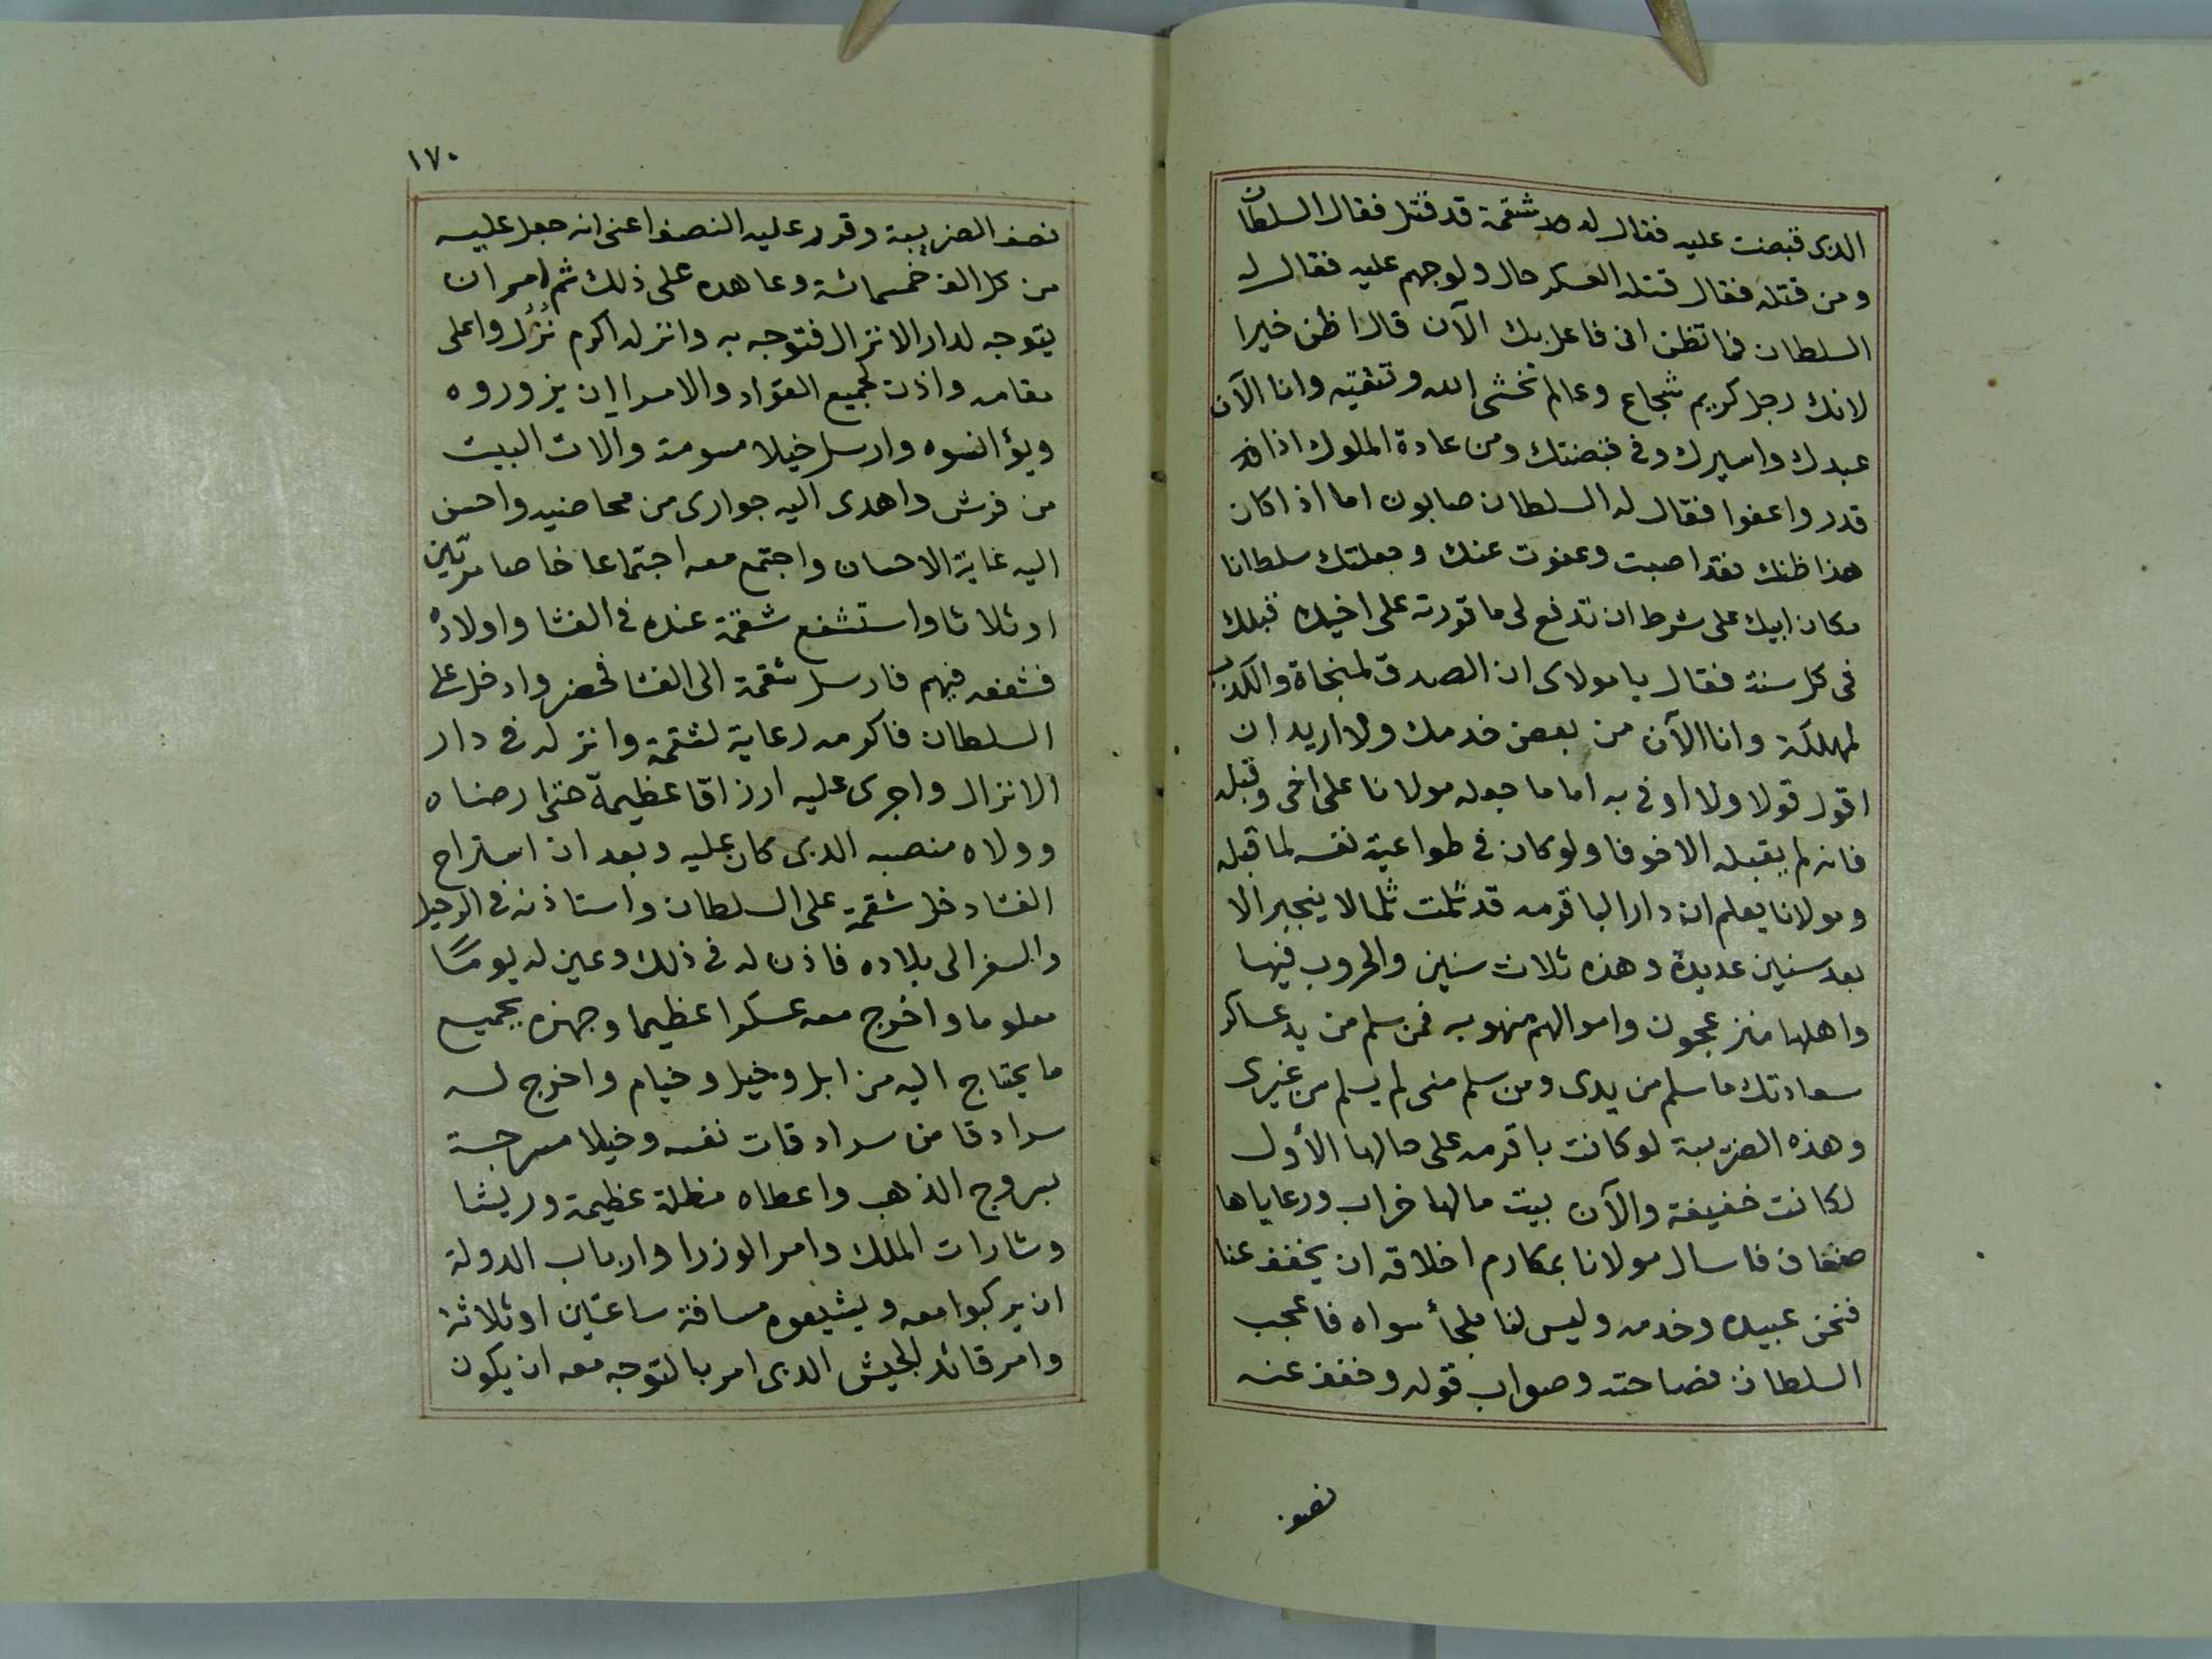 الذى قبضت عليه فقال له شقمة قد قتل فقال السلطان
ومن قتله فقال قتله العسكر حال ولوجهم عليه فقال له
السلطان فما تظن انى فاعل بك الآن قال اظن خيرا
لانك رجل كريم شجاع وعالم تخشى الله وتتقيه وانا الآن
عبدك واسيرك وفى قبضتك ومن عادة الملوك اذا
قدروا عفوا فقال له السلطان صابون اما اذا كان
هذا ظنك فقد اصبت وعفوت عنك وجعلتك سلطانا
مكان ابيك على شرط ان تدفع لى ما قررته على اخيك قبلك
فى كل سنة فقال يا مولاى ان الصدق لمنجاة والكذب
لمهلكة وانا الآن من بعض خدمك ولا اريد ان
اقول قولا ولا اوفى به اما ما جعله مولانا على اخى وقبله
فانه لم يقبله الا خوفا ولو كان فى طواعية نفسه لما قبله
ومولانا يعلم ان دار الباقرمه قد ثلمت ثلما لا ينجبر الا
بعد سنين عديدة وهذه ثلاث سنين والحروب فيها
واهلها منزعجون واموالهم منهوبه فمن سلم من يد عساكر
سعادتك ما سلم من يدى ومن سلم منى لم يسلم من غيرى
وهذه الضريبة لو كانت باقرمه على حالها الأول
لكانت خفيفة والآن بيت مالها خراب ورعاياها
ضعفاء فاسال مولانا بمكارم اخلاقه ان يخفف عنا
فنحن عبيده وخدمه وليس لنا ملجأ سواه فاعجب
السلطان فصاحته وصواب قوله وخفف عنه
نصف
١٧٠
نصف الضريبة وقرر عليه النصف اعنى انه جعل عليه
من كل الف خمسمائة وعاهده على ذلك ثم امر ان
يتوجه لدار الانزال فتوجه به وانزله اكرم نُزُل واعلى
مقامه واذن لجميع القوّاد والامرا ان يزوروه
ويؤانسوه وارسل خيلا مسومة والات البيت
من فرش واهدى اليه جوارى من محاضيه واحسن
اليه غاية الاحسان واجتمع معه اجتماعا خاصا مرتين
او ثلاثا واستشفع شقمة عنده فى الفشا واولاده
فشفعه فيهم فارسل شقمة الى الفشا فحضر وادخل على
السلطان فاكرمه رعاية لشقمة وانزله فى دار
الانزال واجرى عليه ارزاقا عظيمة حتى ارضاه
وولاه منصبه الذى كان عليه وبعد ان استراح
الفشا دخل شقمة على السلطان واستاذنه فى الرحيل
والسفر الى بلاده فاذن له فى ذلك وعين له يومًا
معلوما واخرج معه عسكرا عظيما وجهزه بجميع
ما يحتاج اليه من ابل وخيل وخيام واخرج له
سرادقا من سرادقات نفسه وخيلا مسرجة
بسروج الذهب واعطاه مظلة عظيمة وريشا
وشارات الملك وامر الوزرا وارباب الدولة
ان يركبوا معه ويشيعوه مسافة ساعتين او ثلاثة
وامر قائد الجيش الذى امر بالتوجه معه ان يكون